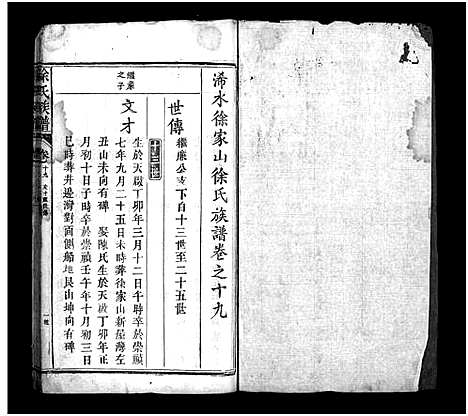 浠水徐家山徐氏族譜卷之十九
世傳
繼康公支下自十三世至二十五世
繼康
之子
文才
生於天啟丁卯年三月十二日午時卒於崇禎
七年九月二十五日未時葬徐家山新屋灣左
丑山未向有碑 娶陳氏生於天啟丁卯年正
月初十日子時卒於崇禎壬午年十月初三日
巳時葬井邊灣對面側船地艮山坤向有碑
徐氏族譜
卷
十九